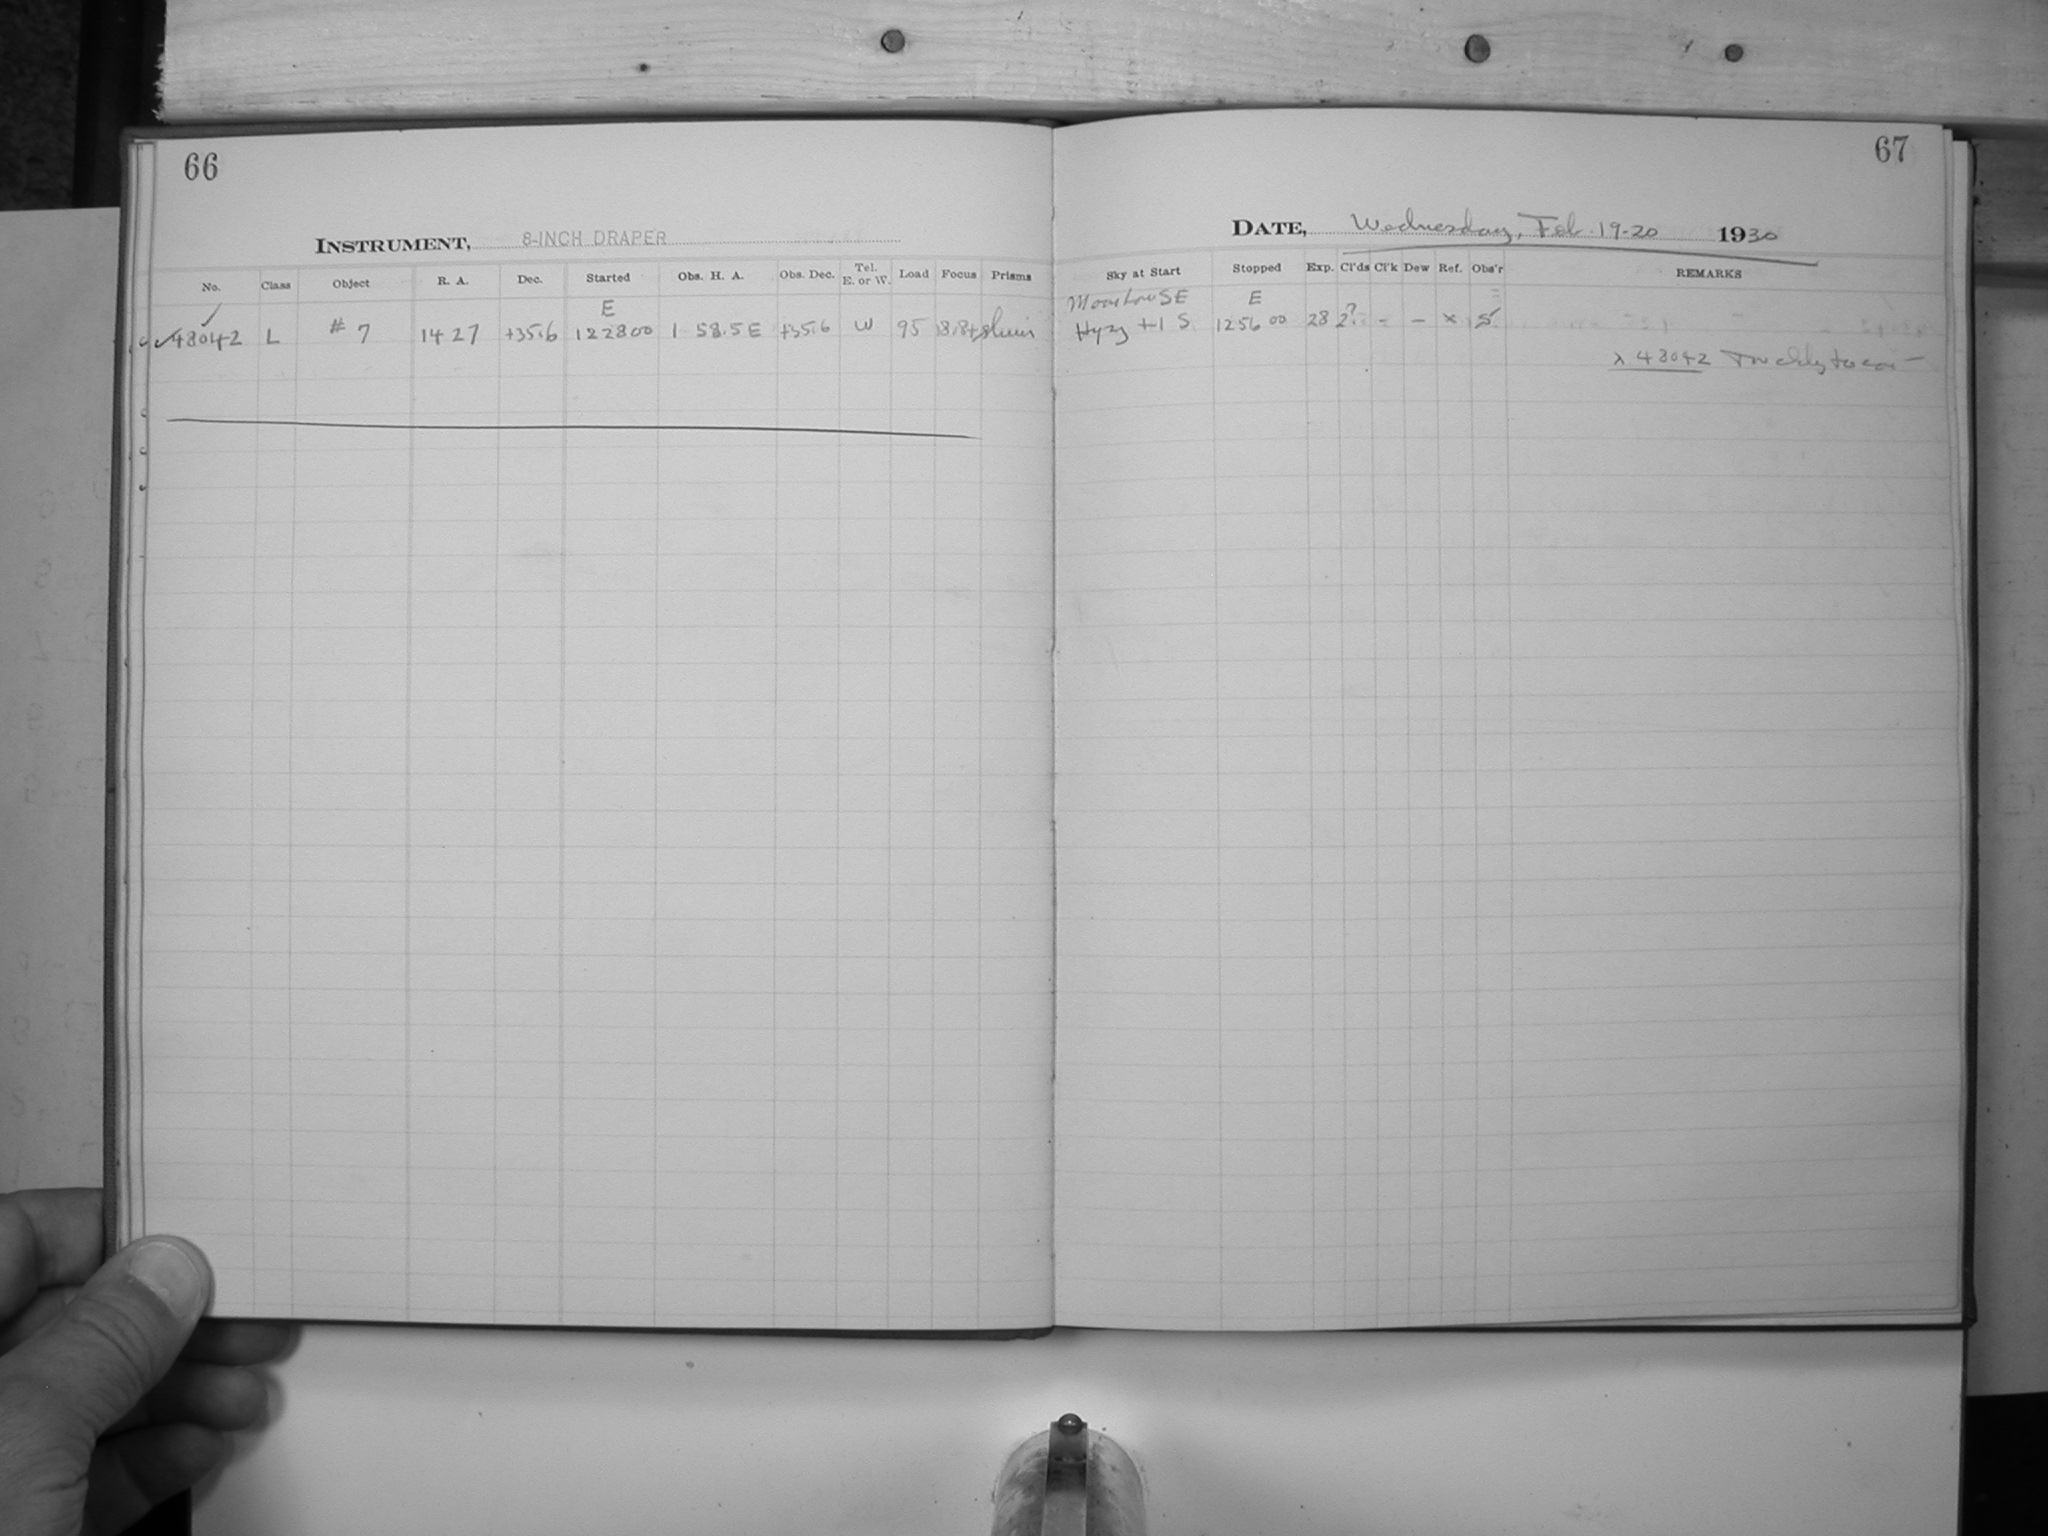 66
INSTRUMENT, 8-INCH DRAPER
No. Class Object R. A. Dec. Started Obs. H. A. Obs. Dec. Tel. E. or W. Load Focus Prisms
E
48042 L # 7 14 27 +35.6 12 28 00 1 58.5 E +35.6 W 95
67
DATE, Wednesday, Feb. 19-20 1930
Sky at Start Stopped Exp. Cl'ds Cl'k Dew Ref. Obs'r REMARKS
Moon Low SE E
Hazy +1 S 12 56 00 28 2? - - x S
λ 48042